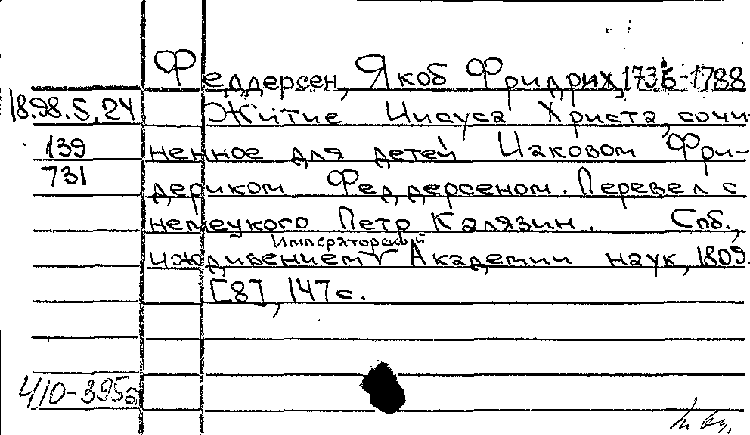 Феддерсен, Якоб Фридрих, 1736-1788
18.98.5.24 Житие Иисуса Христа, сочи-
139 ненное для детей Иаковом Фри-
731 дериком Феддерсеном. Перевел с
немецкого Петр Калязин. Спб.,
Императорской
иждивением Академии наук, 1809.
[8], 147 с.
410-395б